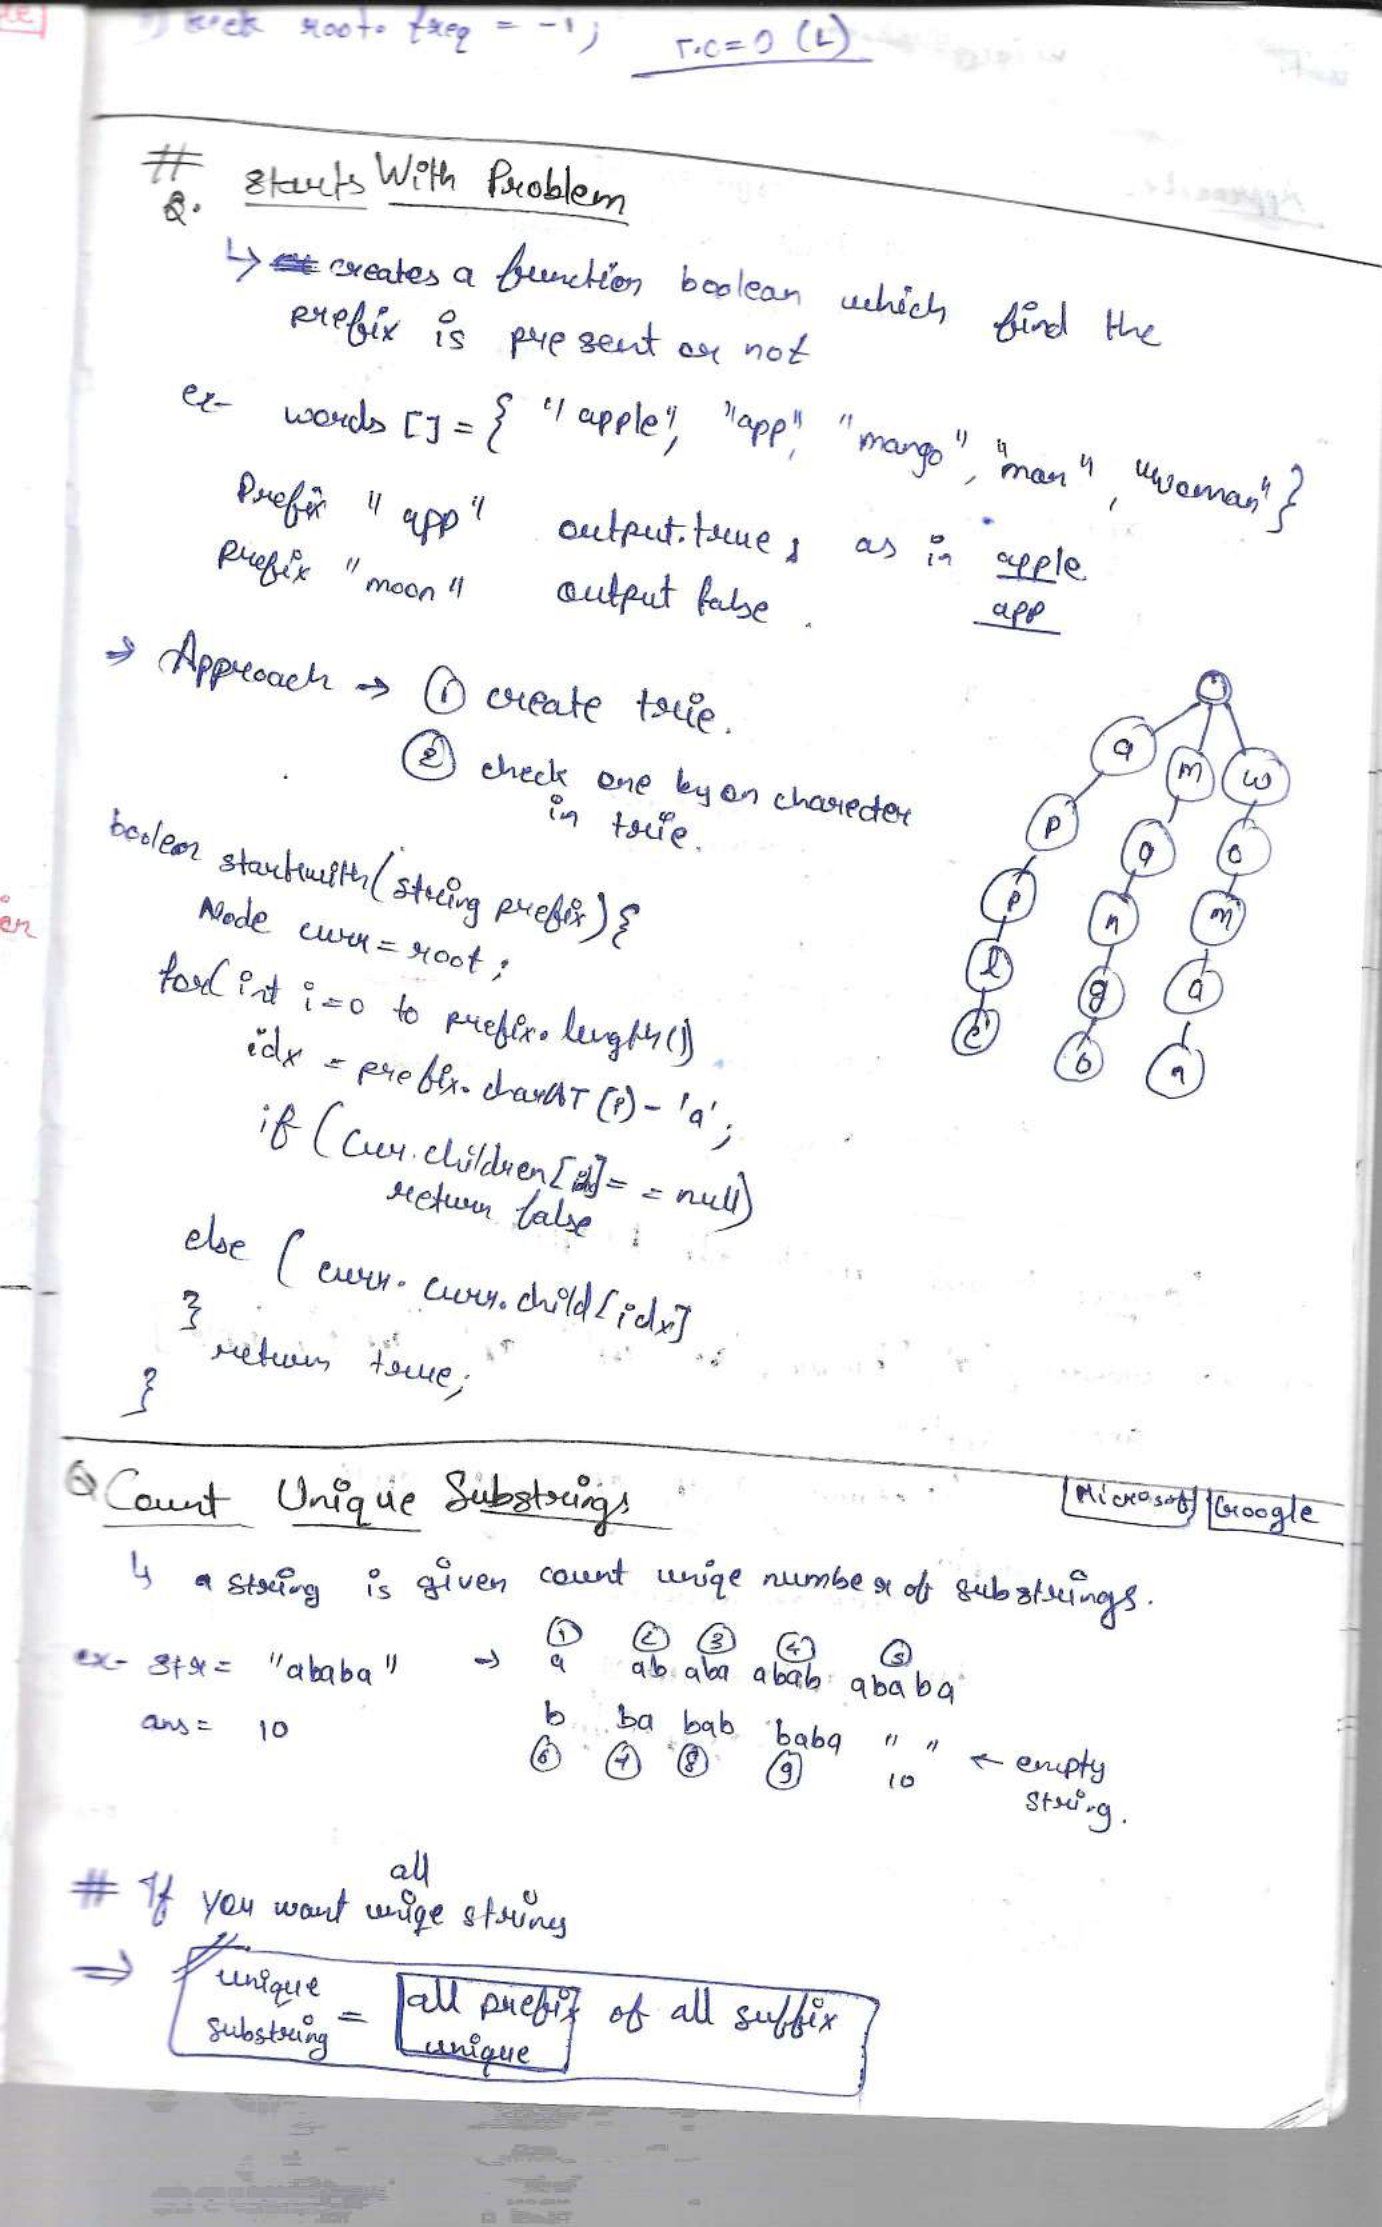 root. freq = -1; T.C=O(L)
#
Q. Starts With Problem
↳ creates a function boolean which find the
prefix is present or not
ex- words [] = { "apple", "app", "mango", "man", "woman" }
Prefix "app" output.true, as in apple
app
prefix "moon" output false.
⇒ Approach → ① create trie.
② check one by on charecter
in trie.
a m w
p a o
p n m
l g a
e o n
boolean startwith(string prefix) {
Node curr = root;
for(int i=0 to prefix.length()
idx = prefix.charAT(i) - 'a';
if (curr.children[idx] == null)
return false
else ( curr. curr.child[idx]
}
return true;
}
Q Count Unique Substrings
Microsoft Google
↳ a string is given count uniqe number of substrings.
① ② ③ ④ ⑤
ex- str = "ababa" → a ab aba abab ababa
ans = 10 b ba bab baba " " ← empty
string.
⑥ ⑦ ⑧ ⑨ 10
all
# If you want uniqe string
⇒ unique
substring = all prefix of all suffix
unique